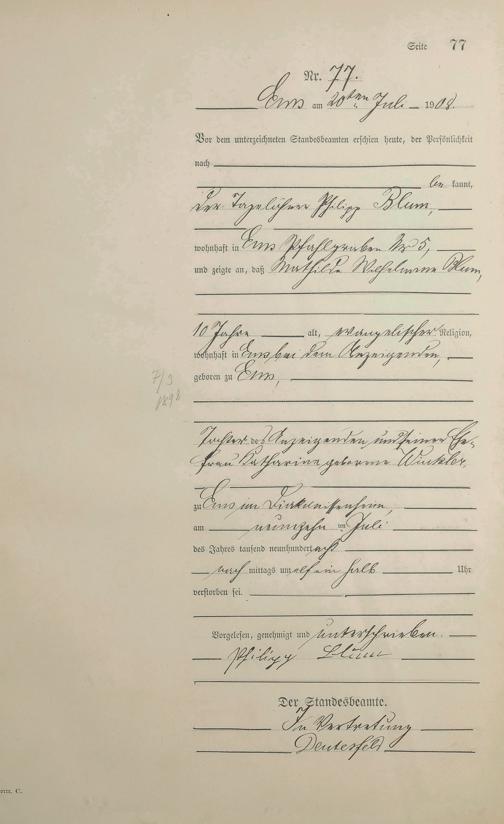 Seite 77
Nr. 77.
Ems am 20ten Juli 1908.
Vor dem unterzeichneten Standesbeamten erschien heute, der Persönlichkeit
nach
be kannt,
der Tagelöhner Philipp Blum,
wohnhaft in Ems Pfahlgraben Nr 5,
und zeigte an, daß Mathilde Wilhelmine Blum,
10 Jahre alt, evangelischer Religion,
wohnhaft in Ems bei dem Anzeigenden,
geboren zu Ems,
7/3
1898
Tochter des Anzeigenden und seiner Ehe-
frau Katharine geborene Winkler,
zu Ems im Diakonissenheim,
am neunzehn ten Juli
des Jahres tausend neunhundert acht
nach mittags um elf ein halb Uhr
verstorben sei.
Vorgelesen, genehmigt und unterschrieben.
Philipp Blum
Der Standesbeamte.
In Vertretung
C.